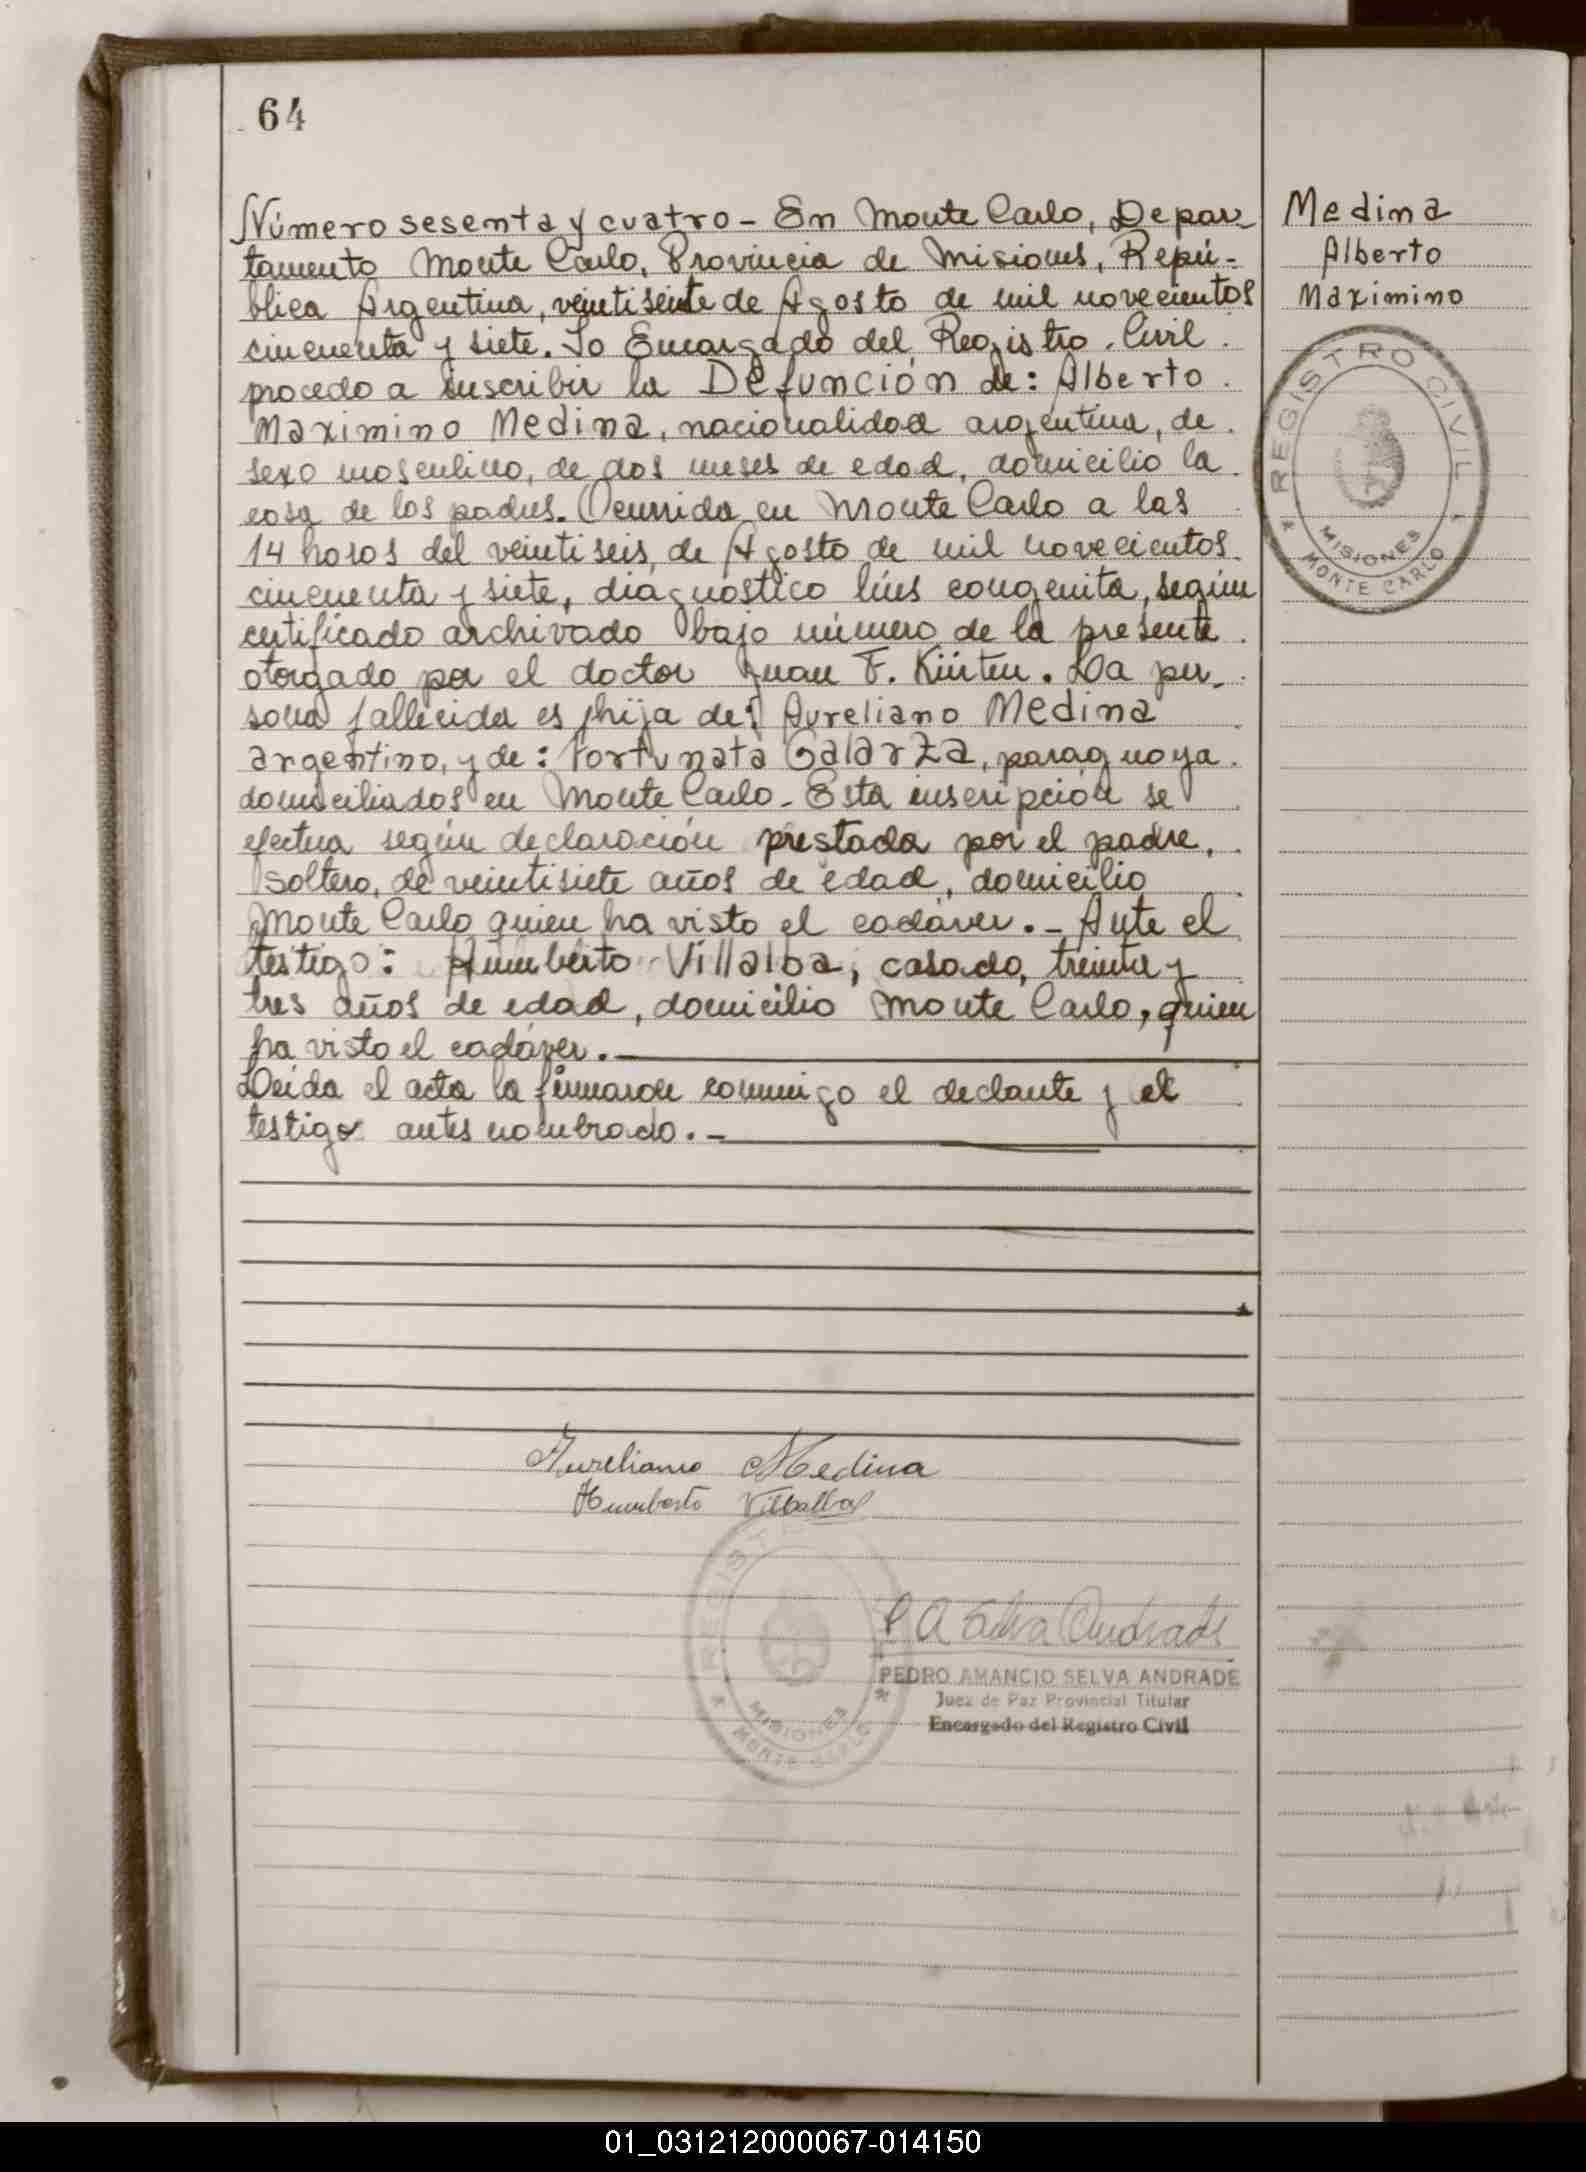 64
Número sesenta y cuatro - En Monte Carlo, Depar-
tamento Monte Carlo, Provincia de Misiones, Repú-
blica Argentina, veintisiete de Agosto de mil novecientos
cincuenta y siete. Yo Encargado del Registro Civil
procedo a inscribir la Defunción de: Alberto
Maximino Medina, nacionalidad argentina, de
sexo masculino, de dos meses de edad, domicilio la
casa de los padres. Ocurrida en Monte Carlo a las
14 horas del veintiseis, de Agosto de mil novecientos
cincuenta y siete, diagnostico lúes congenita, según
certificado archivado bajo número de la presente
otorgado por el doctor Juan F. Kürten. La per-
sona fallecida es hija de: Aureliano Medina
argentino, y de: Fortunata Galarza, paraguaya.
domiciliados en Monte Carlo - Esta inscripción se
efectua según declaración prestada por el padre,
soltero, de veintisiete años de edad, domicilio
Monte Carlo quien ha visto el cadáver. - Ante el
testigo: Humberto Villalba, casado, treinta y
tres años de edad, domicilio Monte Carlo, quien
ha visto el cadáver.
Leída el acta la firmaron conmigo el declante y el
testigo antes nombrado. -
Medina
Alberto
Maximino
REGISTRO CIVIL
MISIONES
* MONTE CARLO *
Aureliano Medina
Humberto Villalba
REGIST
MISIONES
* MONTE CARLO *
P A Selva Andrade
PEDRO AMANCIO SELVA ANDRADE
Juez de Paz Provincial Titular
Encargado del Registro Civil
01_031212000067-014150